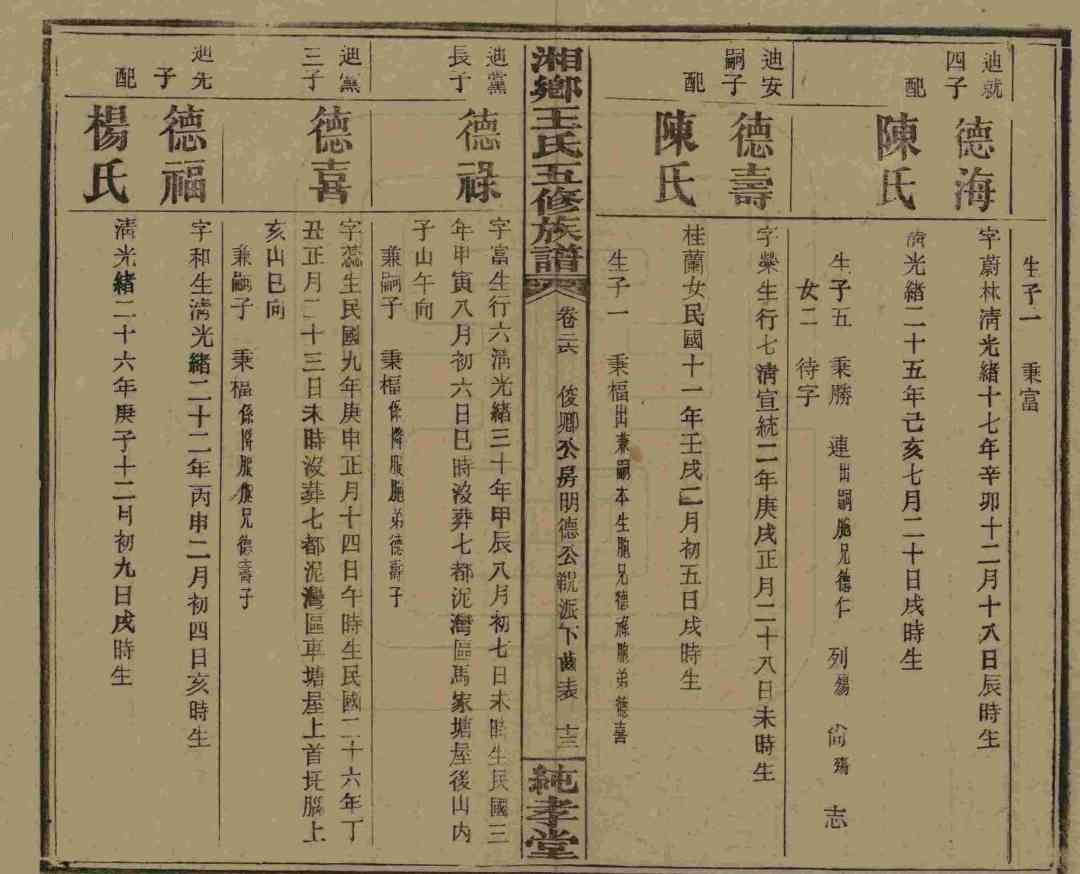 生子一 秉富
迪就四子 德海 字蔚林清光緒十七年辛卯十二月十八日辰時生
配 陳氏 清光緒二十五年己亥七月二十日戌時生
生子五 秉勝 連出嗣胞兄德仁 列殤 尚殤 志
女二 待字
迪安嗣子 德壽 字榮生行七清宣統二年庚戌正月二十八日未時生
配 陳氏 桂蘭女民國十一年壬戌二月初五日戌時生
生子一 秉福出兼嗣本生胞兄德祿胞弟德喜
湘鄉王氏五修族譜 卷六 俊卿公房明德公親派下齒表 十三 純孝堂
迪黨長子 德祿 字富生行六清光緒三十年甲辰八月初七日未時生民國三
年甲寅八月初六日巳時沒葬七都泥灣區馬家塘屋後山內
子山午向
兼嗣子 秉福係降服胞弟德壽子
迪黨三子 德喜 字 生民國九年庚申正月十四日午時生民國二十六年丁
丑正月二十三日未時沒葬七都泥灣區車塘屋上首 腦上
亥山巳向
兼嗣子 秉福係降服胞兄德壽子
迪先子 德福 字和生清光緒二十二年丙申二月初四日亥時生
配 楊氏 清光緒二十六年庚子十二月初九日戌時生